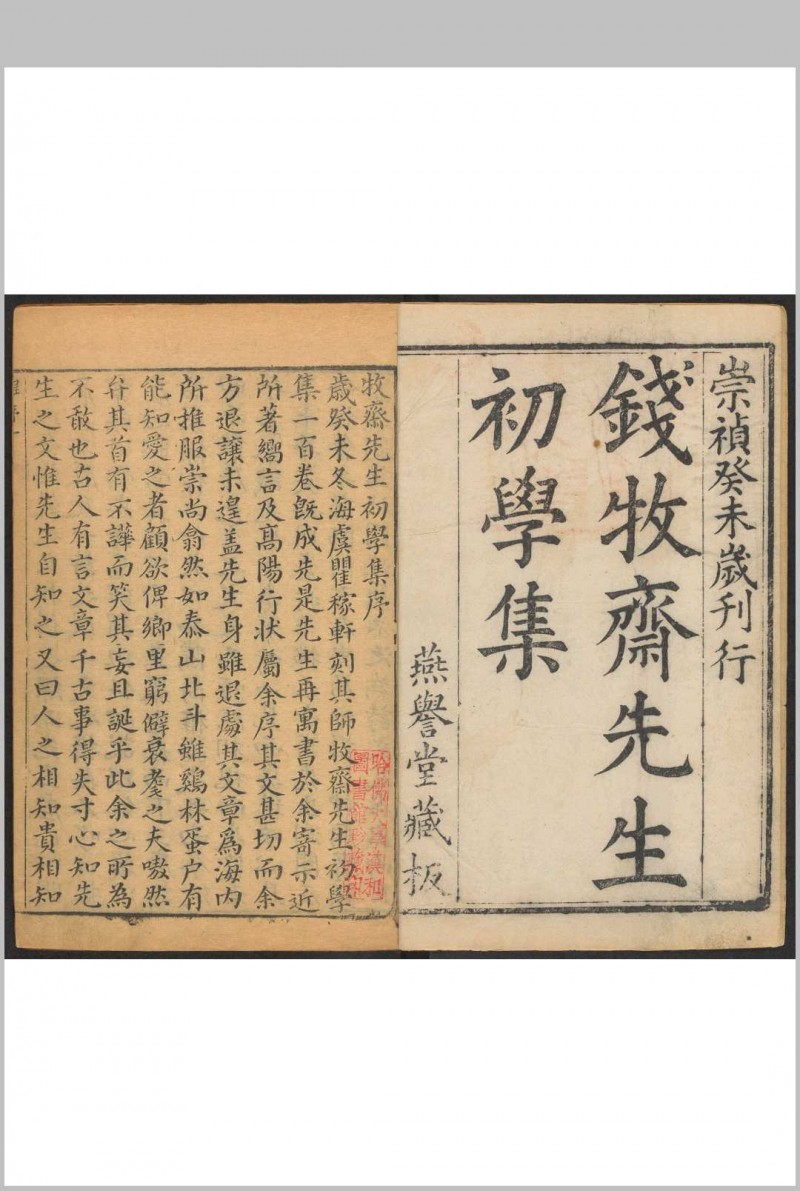 崇禎癸未歲刊行
錢牧齋先生
初學集
燕譽堂藏板
牧齋先生初學集序
歲癸未冬海虞瞿稼軒刻其師牧齋先生初學
集一百卷旣成先是先生再寓書於余寄示近
所著嚮言及髙陽行狀屬余序其文甚切而余
方退讓未遑盖先生身雖退處其文章爲海內
所推服崇尚翕然如泰山北斗雖鷄林蛋户有
能知愛之者顧欲俾鄉里窮僻衰耄之夫嗷然
弁其首有不譁而笑其妄且誕乎此余之所為
不敢也古人有言文章千古事得失寸心知先
生之文惟先生自知之又曰人之相知貴相知
哈佛大學漢和
圖書館珍藏印